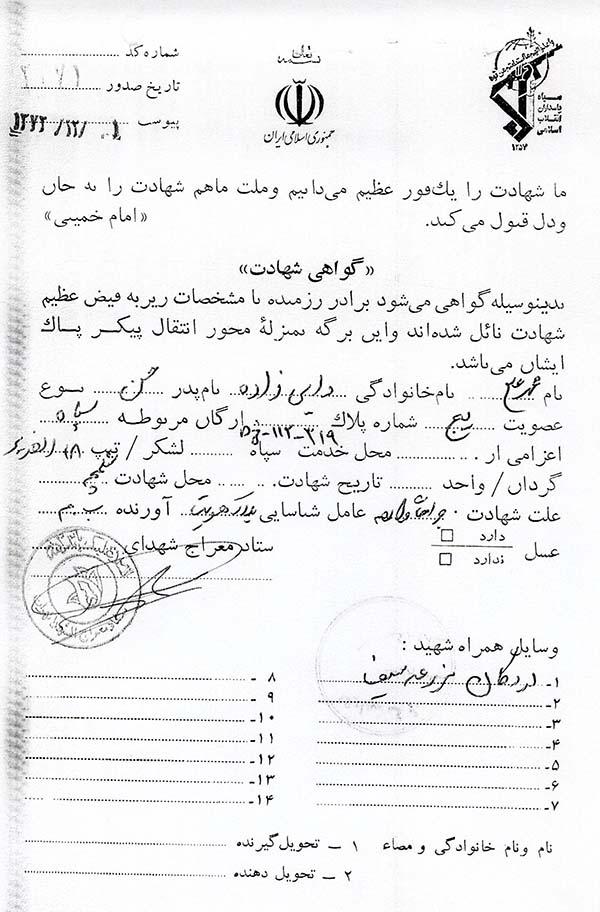 سپاه
پاسداران
انقلاب
اسلامی
۱۳۵۷
جمهوری اسلامی ایران
شماره کد
تاریخ صدور
پیوست
ما شهادت را یك فوز عظیم می‌دانیم وملت ماهم شهادت را به جان
ودل قبول می‌کند. «امام خمینی»
«گواهی شهادت»
بدینوسیله گواهی می‌شود برادر رزمنده با مشخصات زیر به فیض عظیم
شهادت نائل شده‌اند واین برگه بمنزلهٔ مجوز انتقال پیکر پاك
ایشان می‌باشد.
نام محمد علی نام‌خانوادگی زاده نام‌پدر نوع
عضویت بسیج شماره پلاك ارگان مربوطه سپاه
اعزامی از محل خدمت سپاه لشکر / تیپ
گردان / واحد تاریخ شهادت محل شهادت
علت شهادت عامل شناسایی آورنده
غسل دارد
ندارد
ستاد معراج شهدای
وسایل همراه شهید :
۱- اردکان مزرعه سیف
۲-
۳-
۴-
۵-
۶-
۷-
۸ -
۹ -
۱۰-
۱۱-
۱۲-
۱۳-
۱۴-
نام ونام خانوادگی و امضاء ۱ – تحویل گیرنده
۲ – تحویل دهنده